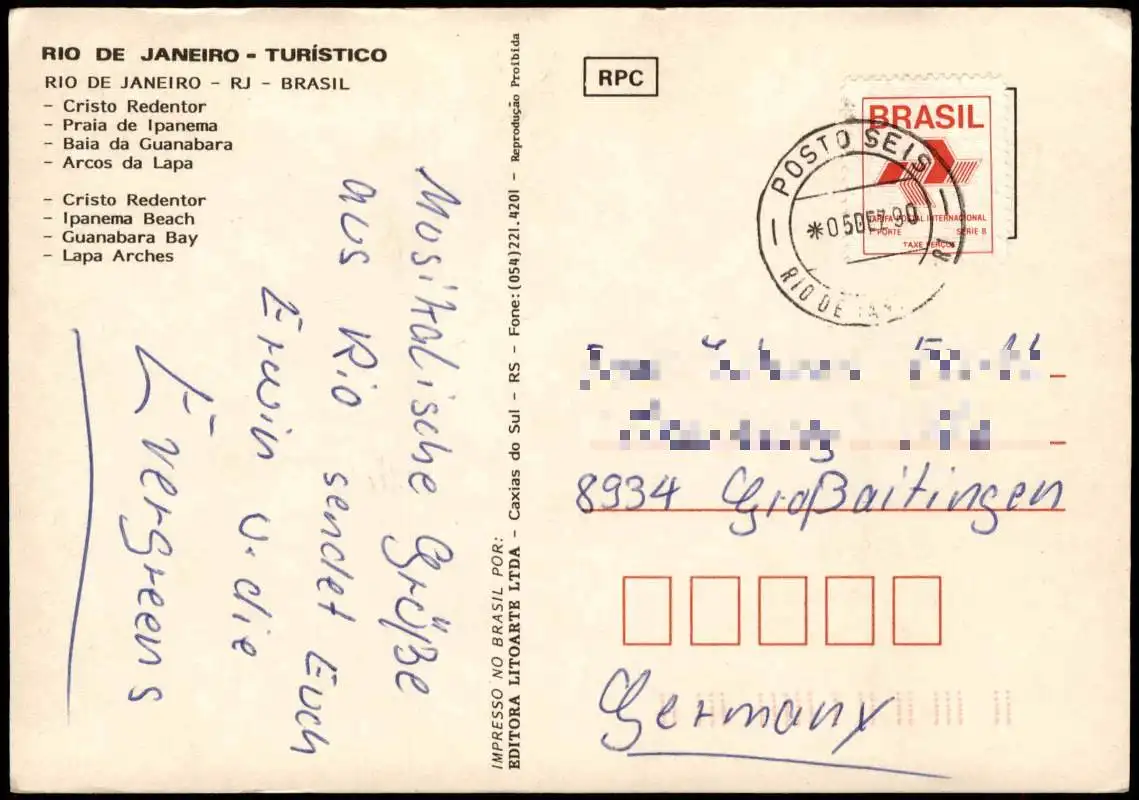 RIO DE JANEIRO - TURÍSTICO
RIO DE JANEIRO - RJ - BRASIL
- Cristo Redentor
- Praia de Ipanema
- Baia da Guanabara
- Arcos da Lapa
- Cristo Redentor
- Ipanema Beach
- Guanabara Bay
- Lapa Arches
Musikalische Grüße
aus Rio sendet Euch
Erwin u. die
Evergreens
IMPRESSO NO BRASIL POR:
EDITORA LITOARTE LTDA - Caxias do Sul - RS - Fone: (054) 221.4201 - Reprodução Proibida
RPC
BRASIL
TARIFA POSTAL INTERNACIONAL
1º PORTE SÉRIE B
TAXE PERÇUE
POSTO SEIS
*05 DEZ 90
RIO DE
8934 Großaitingen
Germany